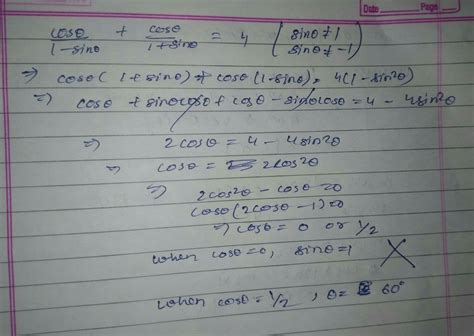 Date Page
cosθ/(1-sinθ) + cosθ/(1+sinθ) = 4 (sinθ≠1 sinθ≠-1)
⇒ cosθ(1+sinθ)+cosθ(1-sinθ)= 4(1-sin²θ)
⇒ cosθ + sinθcosθ + cosθ - sinθcosθ = 4 - 4sin²θ
⇒ 2cosθ = 4 - 4sin²θ
⇒ cosθ = 2cos²θ
⇒ 2cos²θ - cosθ = 0
cosθ(2cosθ - 1)=0
⇒ cosθ = 0 or 1/2
when cosθ=0, sinθ=1 ✗
when cosθ = 1/2, θ = 60°